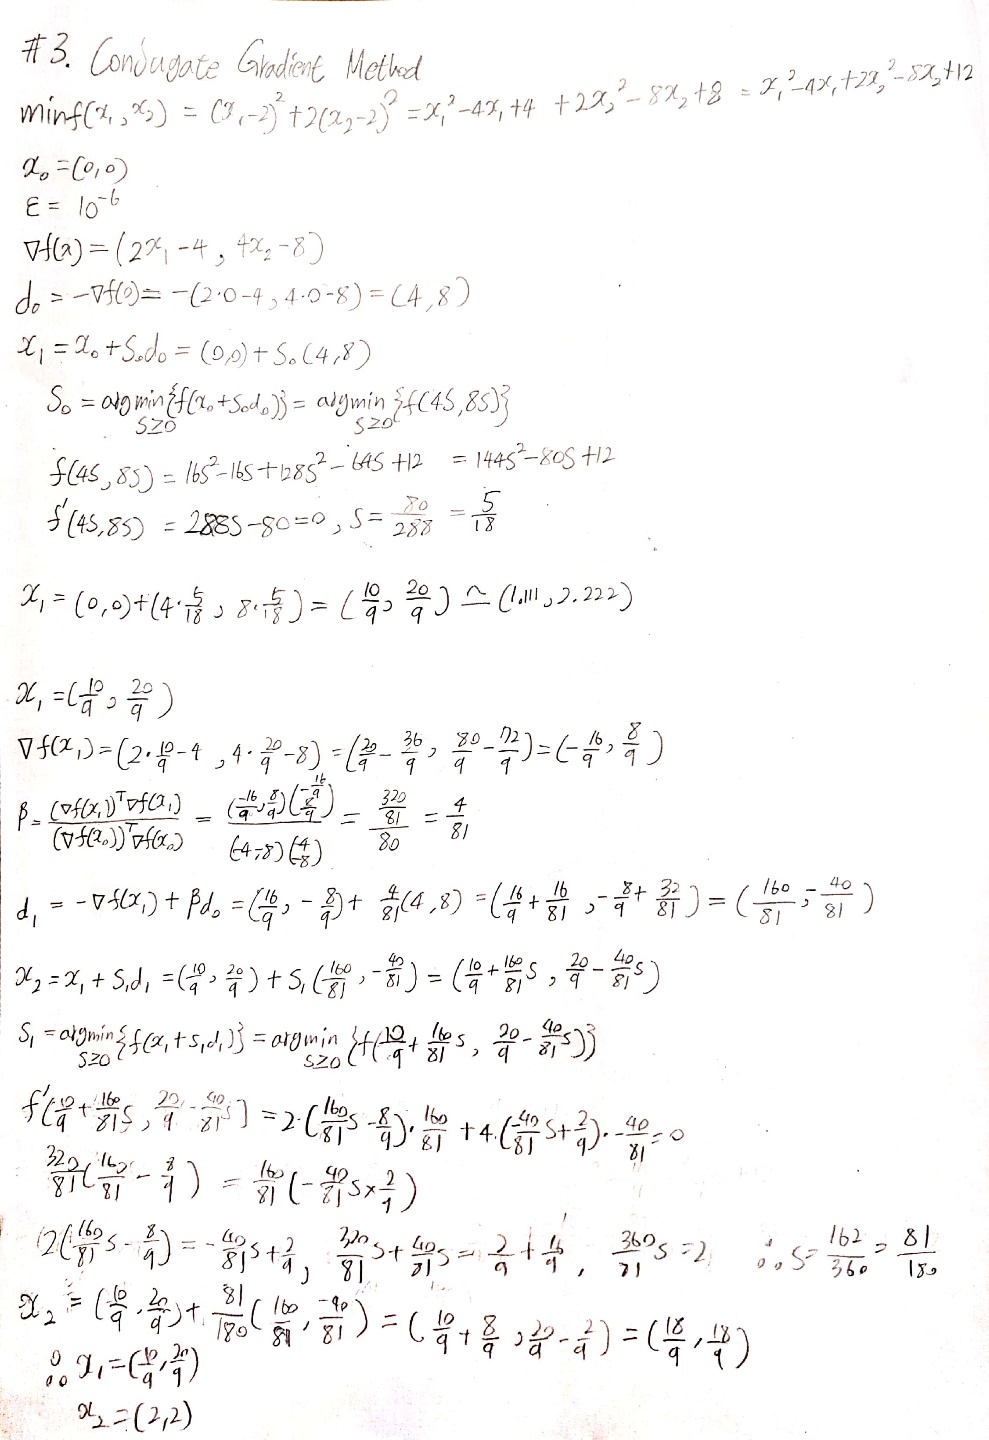 #3. Conjugate Gradient Method
minf(x₁,x₂) = (x₁-2)²+2(x₂-2)² = x₁²-4x₁+4 +2x₂²-8x₂+8 = x₁²-4x₁+2x₂²-8x₂+12
x₀=(0,0)
ε= 10⁻⁶
∇f(x)=(2x₁-4, 4x₂-8)
d₀=-∇f(0)=-(2·0-4, 4·0-8)=(4,8)
x₁=x₀+S₀d₀=(0,0)+S₀(4,8)
S₀=argmin{f(x₀+S₀d₀)}=argmin{f(4S,8S)}
S≥0 S≥0
f(4S,8S)=16S²-16S+128S²-64S+12 =144S²-80S+12
f'(4S,8S) =288S-80=0, S=80/288=5/18
x₁=(0,0)+(4·5/18, 8·5/18)=(10/9, 20/9)≃(1.111,2.222)
x₁=(10/9, 20/9)
∇f(x₁)=(2·10/9-4, 4·20/9-8)=(20/9-36/9, 80/9-72/9)=(-16/9, 8/9)
β=(∇f(x₁))ᵀ∇f(x₁)/(∇f(x₀))ᵀ∇f(x₀)=(-16/9, 8/9)(-16/9 8/9)/(-4,-8)(-4 -8)=320/81/80=4/81
d₁=-∇f(x₁)+βd₀=(16/9, -8/9)+4/81(4,8)=(16/9+16/81, -8/9+32/81)=(160/81, -40/81)
x₂=x₁+S₁d₁=(10/9, 20/9)+S₁(160/81, -40/81)=(10/9+160/81S, 20/9-40/81S)
S₁=argmin{f(x₁+S₁d₁)}=argmin{f(10/9+160/81S, 20/9-40/81S)}
S≥0 S≥0
f'(10/9+160/81S, 20/9-40/81S)=2·(160/81S-8/9)·160/81+4·(-40/81S+2/9)·-40/81=0
320/81(160/81-8/9)=160/81(-40/81S+2/9)
2(160/81S-8/9)=-40/81S+2/9, 320/81S+40/81S=2/9+16/9, 360/81S=2, ∴S=162/360=81/180
x₂=(10/9, 20/9)+81/180(160/81, -40/81)=(10/9+8/9, 20/9-2/9)=(18/9, 18/9)
∴x₁=(10/9, 20/9)
x₂=(2,2)